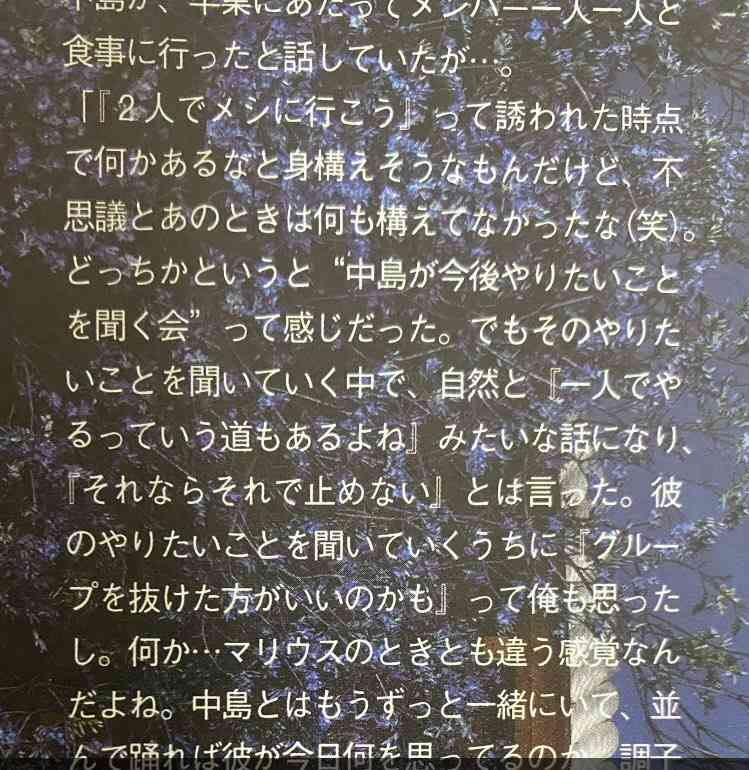 中島が、卒業にあたってメンバー一人一人と
食事に行ったと話していたが…。
「『2人でメシに行こう』って誘われた時点
で何かあるなと身構えそうなもんだけど、不
思議とあのときは何も構えてなかったな(笑)。
どっちかというと“中島が今後やりたいこと
を聞く会”って感じだった。でもそのやりた
いことを聞いていく中で、自然と『一人でや
るっていう道もあるよね』みたいな話になり、
『それならそれで止めない』とは言った。彼
のやりたいことを聞いていくうちに『グルー
プを抜けた方がいいのかも』って俺も思った
し。何か…マリウスのときとも違う感覚なん
だよね。中島とはもうずっと一緒にいて、並
んで踊れば彼が今日何を思ってるのか、調子